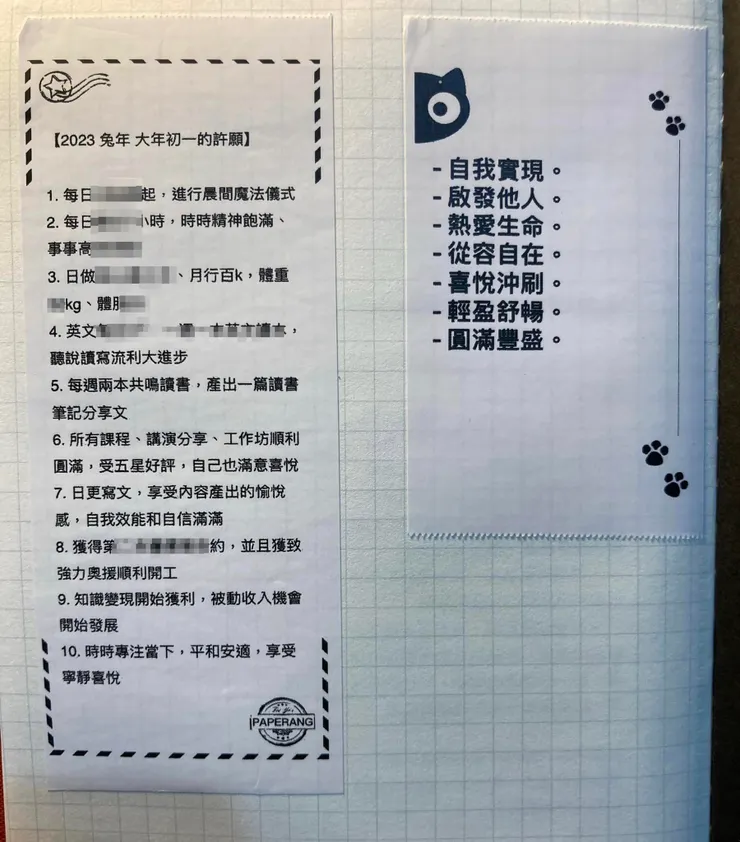 【2023 兔年 大年初一的許願】
1. 每日 起，進行晨間魔法儀式
2. 每日 小時，時時精神飽滿、
事事高
3. 日做 、月行百k，體重
kg、體脂
4. 英文 ，
聽說讀寫流利大進步
5. 每週兩本共鳴讀書，產出一篇讀書
筆記分享文
6. 所有課程、講演分享、工作坊順利
圓滿，受五星好評，自己也滿意喜悅
7. 日更寫文，享受內容產出的愉悅
感，自我效能和自信滿滿
8. 獲得第 約，並且獲致
強力奧援順利開工
9. 知識變現開始獲利，被動收入機會
開始發展
10. 時時專注當下，平和安適，享受
寧靜喜悅
PAPERANG
- 自我實現。
- 啟發他人。
- 熱愛生命。
- 從容自在。
- 喜悅沖刷。
- 輕盈舒暢。
- 圓滿豐盛。